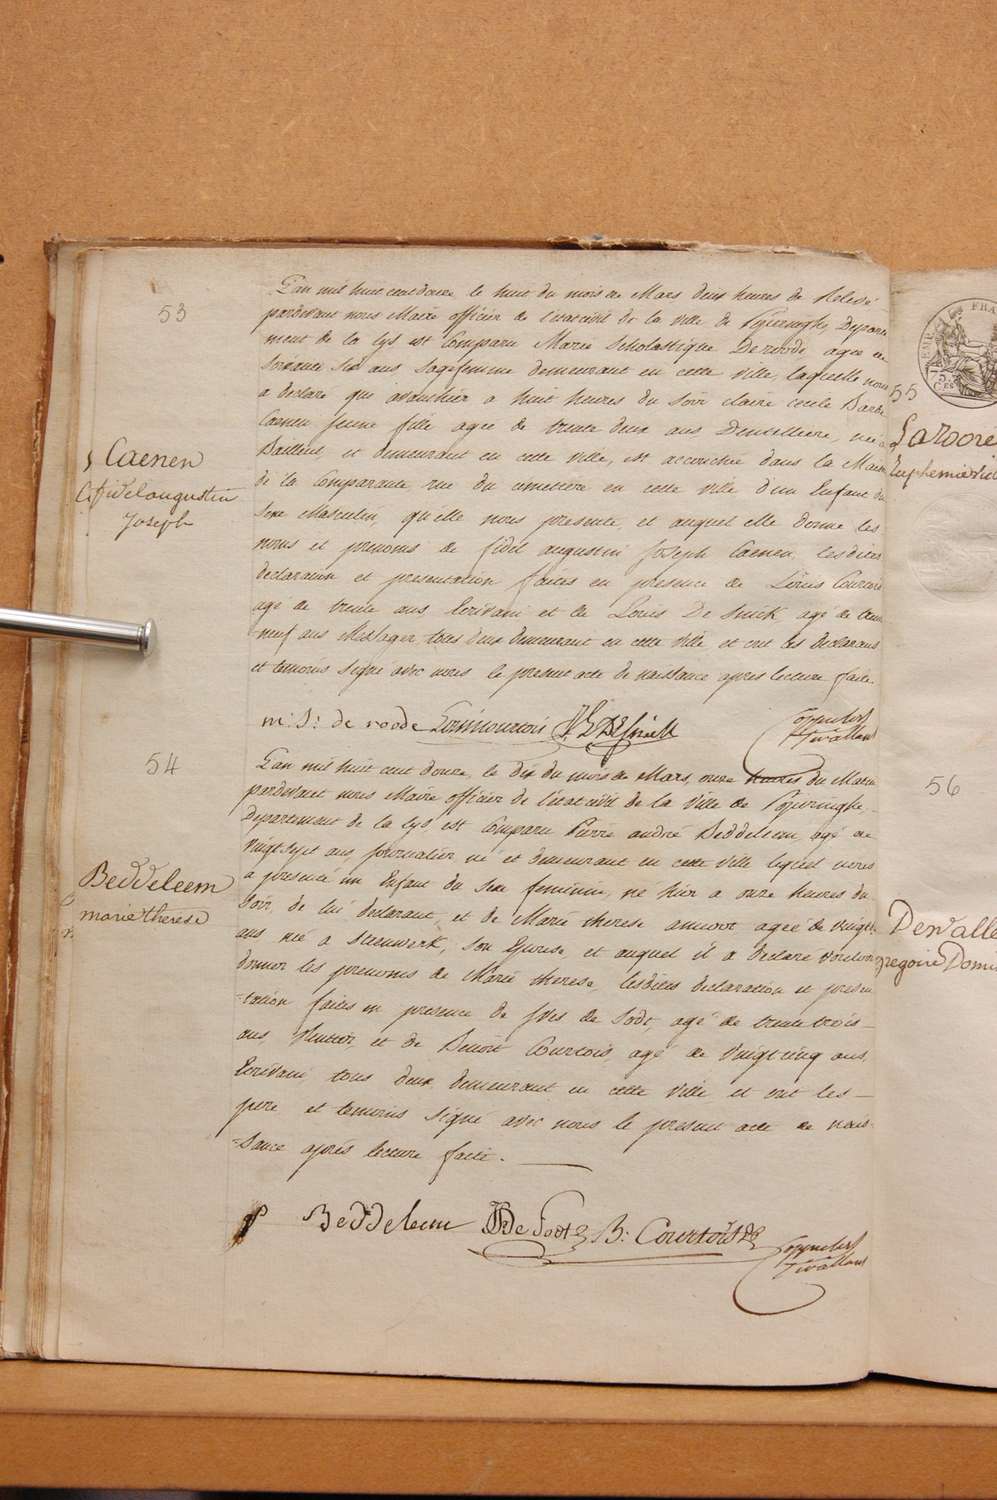 53
Caenen
fidel augustin
Joseph
L'an mil huit cent douze le huit du mois de Mars deux heures de Relevé
pardevant nous Maire officier de l'etat civil de la ville de Poperinghe Departe
ment de la Lys est Comparu Marie Scholastique De roode, agee de
Soixante Six ans Sagefemme demeurant en cette ville, laquelle nous
a declaré que avanthier a huit heures du Soir claire cecile Barbe
Caenen jeune fille agee de trente deux ans Dentelliere, née a
Bailleul et demeurant en cette ville, est accouchée dans la Maison
de la Comparante, rue du cimetiere en cette ville d'un Enfant du
Sexe Masculin, qu'elle nous presente, et auquel elle donne les
noms et prenoms de fidel augustin Joseph Caenen, lesdites
declaration et presentation faites en presence de Louis Courtois
agé de trente ans, Ecrivain et de Louis De Smick agé de trente
neuf ans Messager tous deux demeurant en cette ville et ont les declarans
et temoins Signé avec nous le present acte de naissance apres lecture faite.
m: S: de roode Louis Courtois
54
Beddeleem
marie therese
L'an mil huit cent douze, le dix du mois de Mars, onze heures du Matin
pardevant nous Maire officier de l'etat civil de la ville de Poperinghe,
Departement de la Lys est Comparu Pierre andré Beddeleem, agé de
vingt sept ans, journalier né et demeurant en cette ville lequel nous
a presenté un Enfant du Sexe feminin, né hier a onze heures du
Soir, de lui declarant, et de Marie therese agée de vingt
ans née a Steenwerk, Son Epouse, et auquel il a declaré vouloir
donner les prenoms de Marie therese, lesdites declaration et presen
-tation faites en presence de Yves de Sodt, agé de trente trois
ans, et de Benoit Courtois, agé de vingt cinq ans,
Ecrivain tous deux demeurant en cette ville et ont les
pere et temoins Signé avec nous le present acte de nais-
=Sance aprés lecture faite.
P Beddeleem de Sodt B: Courtois
55
Euphemie
56
Dewalle
gregoire Domi